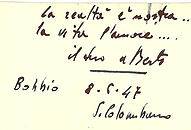 la realtà è nostra..
la vita l'amore....
il vino a Berto
Bobbio 8-5-47
S. Colombano